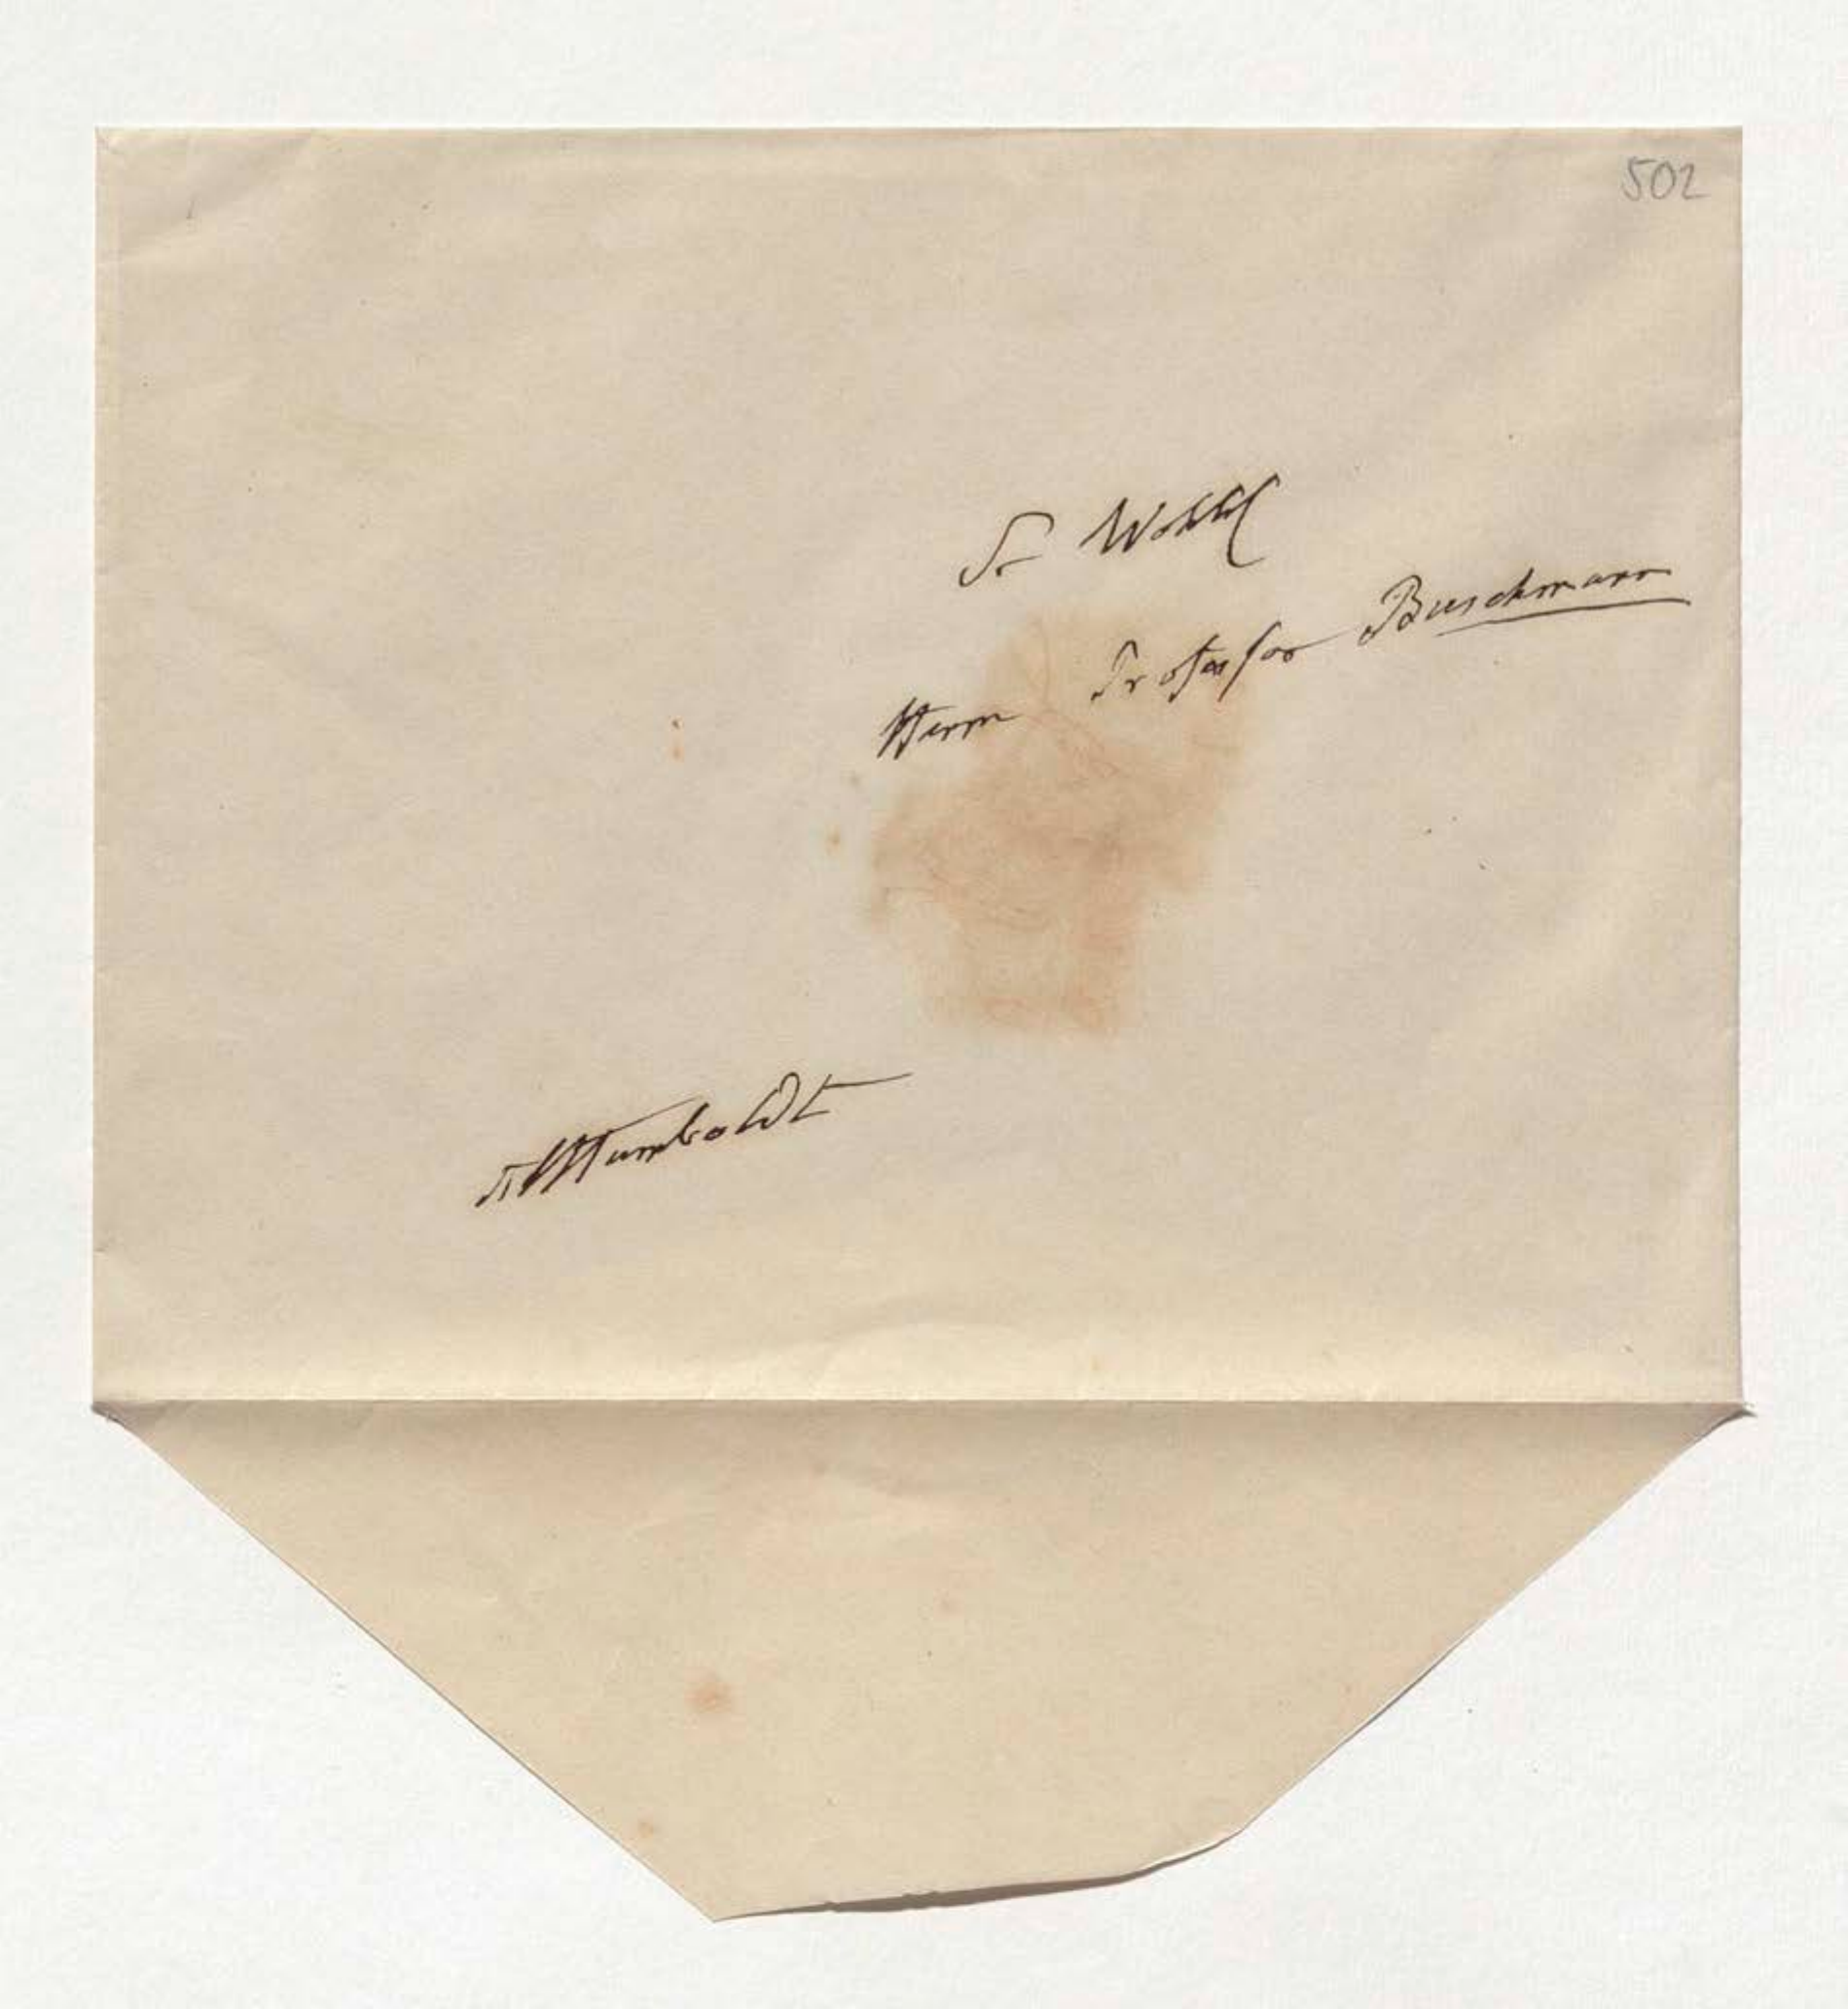 502
Sr Wohlg
Herrn Professor Buschmann
AvHumboldt